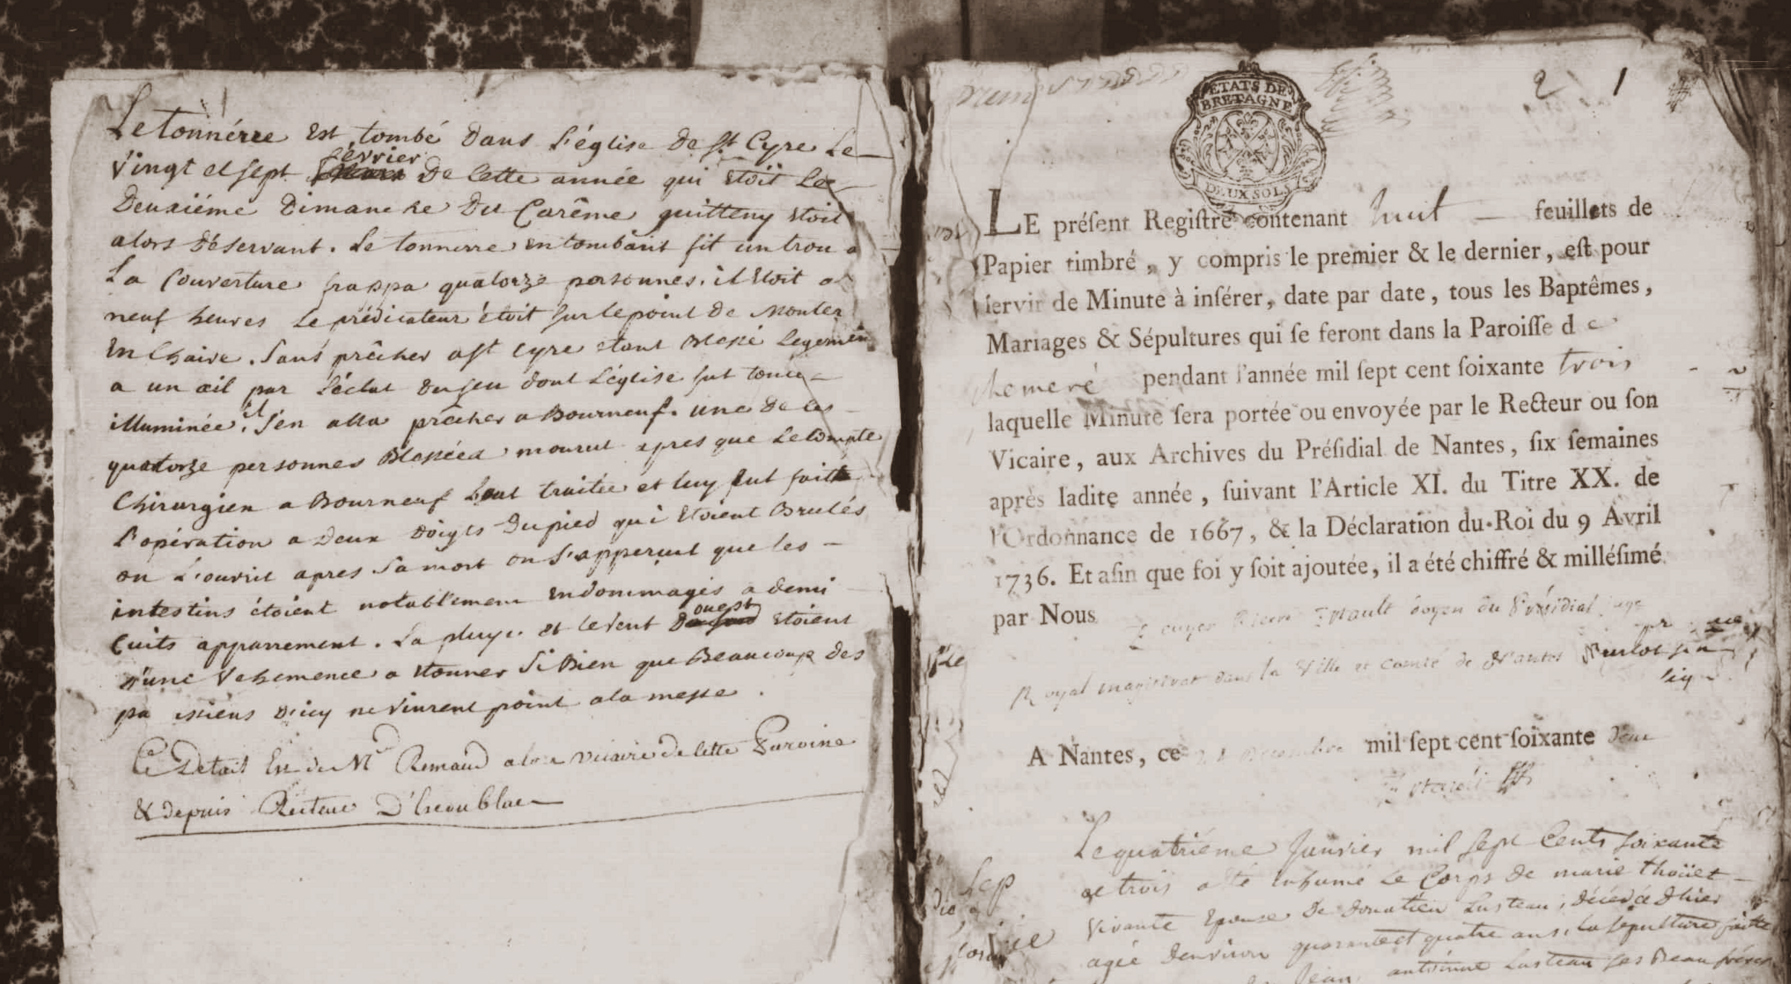 Le tonnérre Est tombé Dans L'église De st Cyre Le
vingt et sept février De Cette année qui Etoit Le
Deuxiéme Dimanche Du Carême quitteny Etoit
alors Déservant. Le tonnerre en tombant fit un trou a
La Couverture frappa quatorze personnes. il Etoit
neuf heures Le prédicateur étoit sur le point de Monter
En Chaire. Sans prêcher a st Cyre etant Blessé Legerment
a un œil par L'éclat du feu dont L'église fut toute
illuminée. il s'en alla prêcher a Bourneuf. une De ces
quatorze personnes Blessées mourut apres que Lecompte
Chirurgien a Bourneuf Leut traitée et luy fut faitte
L'opération a Deux Doigts Du pied qui Etoient Brulés
on L'ouvrit apres sa mort on s'apperçut que les
intestins étoient notablement Endommagés a demi
Cuits apparrement. La pluye et le vent D'ouest Etoient
D'une Vehemence a Etonner si Bien que Beaucoup Des
paroissiens D'icy ne vinrent point a la messe.
Ce Detail Est de Mr Renaud alors vicaire de cette Paroisse
& depuis Recteur D'Escoublac
2 1
ETATS DE
BRETAGNE
DEUX SOLS
LE préſent Regiſtre contenant huit feuillets de
Papier timbré, y compris le premier & le dernier, eſt pour
ſervir de Minute à inſérer, date par date, tous les Baptêmes,
Mariages & Sépultures qui ſe feront dans la Paroiſſe d e
chemeré pendant l'année mil ſept cent ſoixante trois
laquelle Minute ſera portée ou envoyée par le Recteur ou ſon
Vicaire, aux Archives du Préſidial de Nantes, ſix ſemaines
après ladite année, ſuivant l'Article XI. du Titre XX. de
l'Ordonnance de 1667, & la Déclaration du Roi du 9 Avril
1736. Et afin que foi y ſoit ajoutée, il a été chiffré & milléſimé
par Nous Ecuyer doyen du Présidial juge
Royal magistrat dans la Ville et comté de Nantes
A Nantes, ce décembre mil ſept cent ſoixante deux
Le quatriéme Janvier mil sept Cents soixante
et trois a été inhumé Le Corps De marie thoüet
vivante Epouse De Donatien Lusteau, décédée D'hier
agée D'environ quarante et quatre ans. La sépulture faitte
Jean, antoinne Lusteau ses Beaufréres